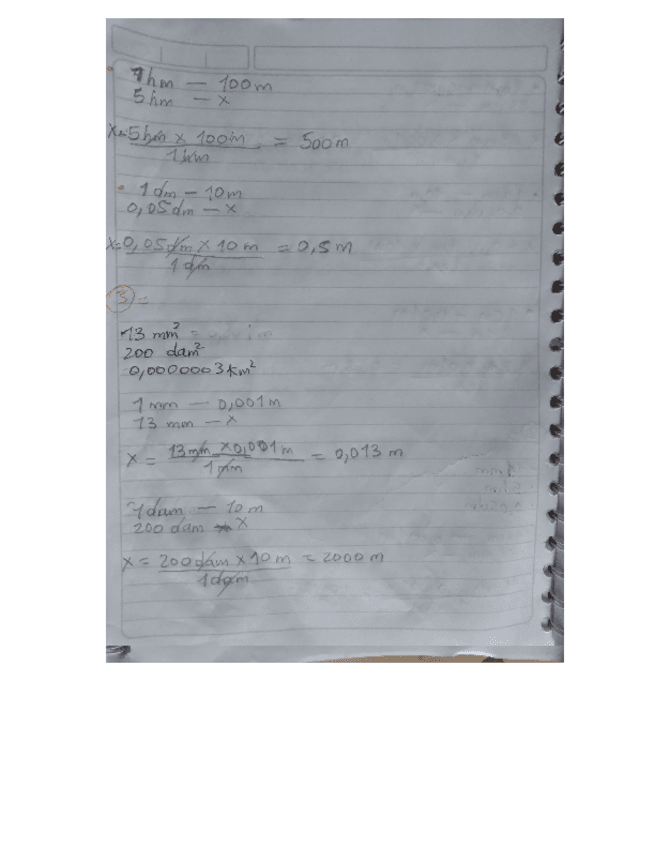 1hm — 100m
5hm — x
x=5hm x 100m = 500m
1hm
1dm — 10m
0,05dm — x
x=0,05dm x 10 m = 0,5 m
1dm
3 =
13 mm²
200 dam²
0,0000003 km²
1 mm — 0,001m
13 mm — x
x = 13mm x 0,001m = 0,013 m
1mm
1dam — 10m
200 dam — x
x = 200dam x 10 m = 2000 m
1dam